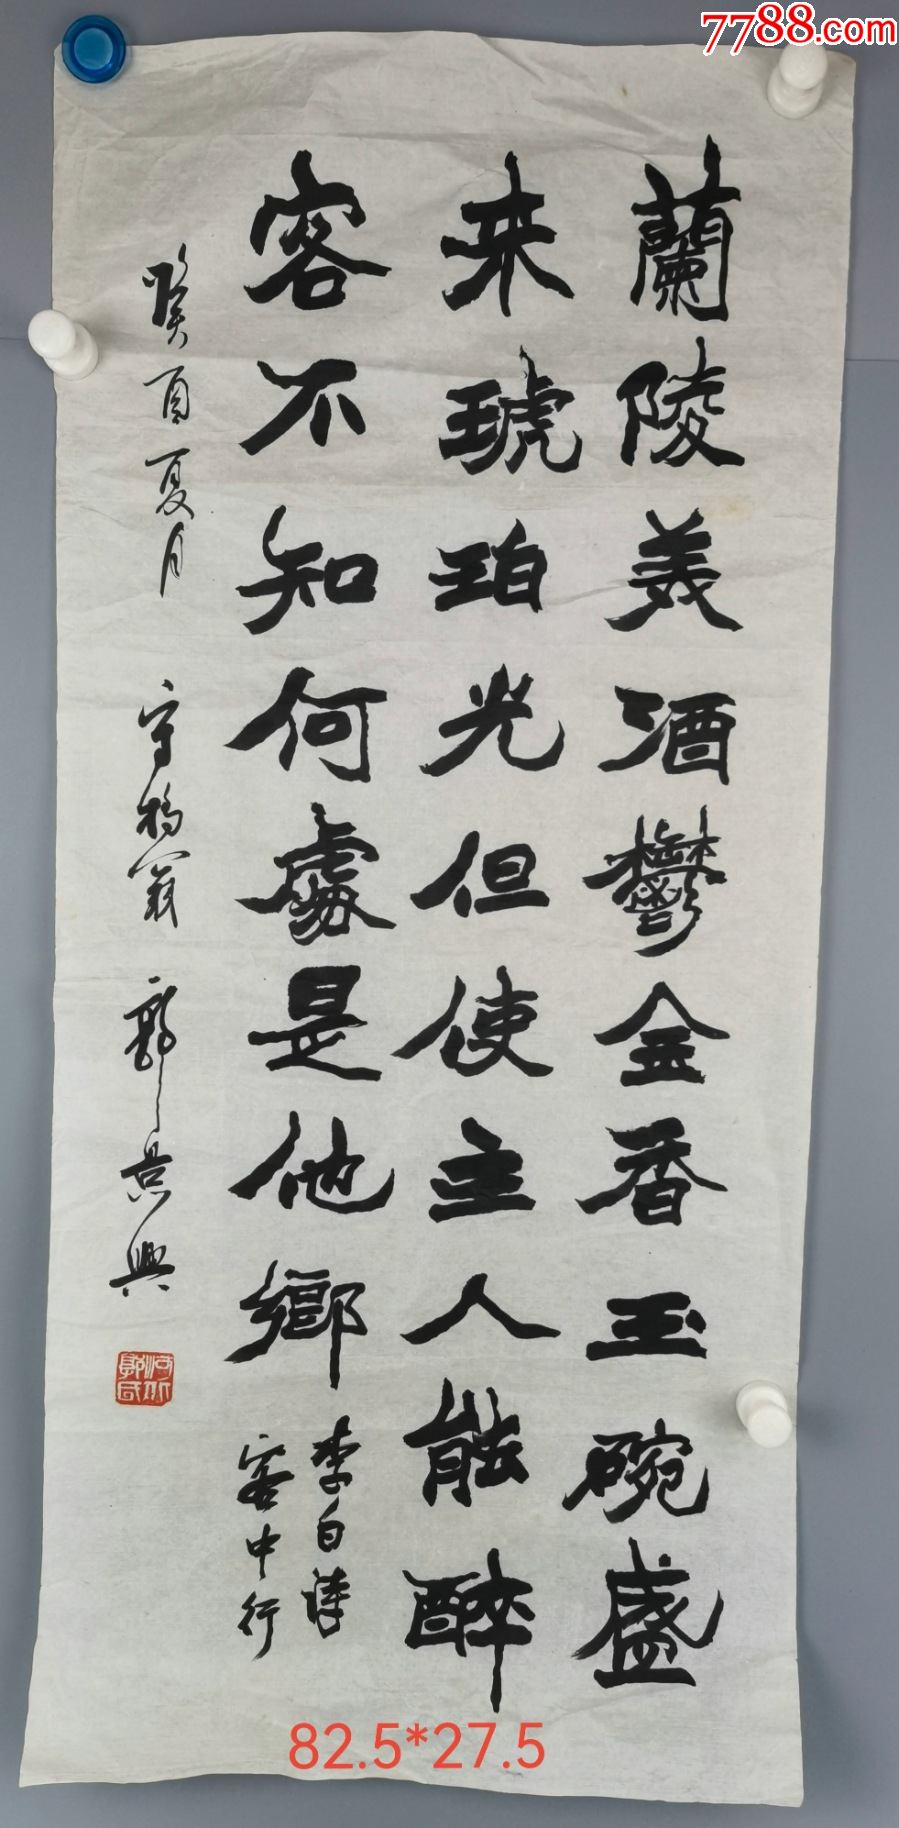 7788.com
蘭陵美酒鬱金香玉碗盛
来琥珀光但使主人能醉
客不知何處是他鄉
李白詩
客中行
癸酉夏月 守楊翁 郭景興
82.5*27.5